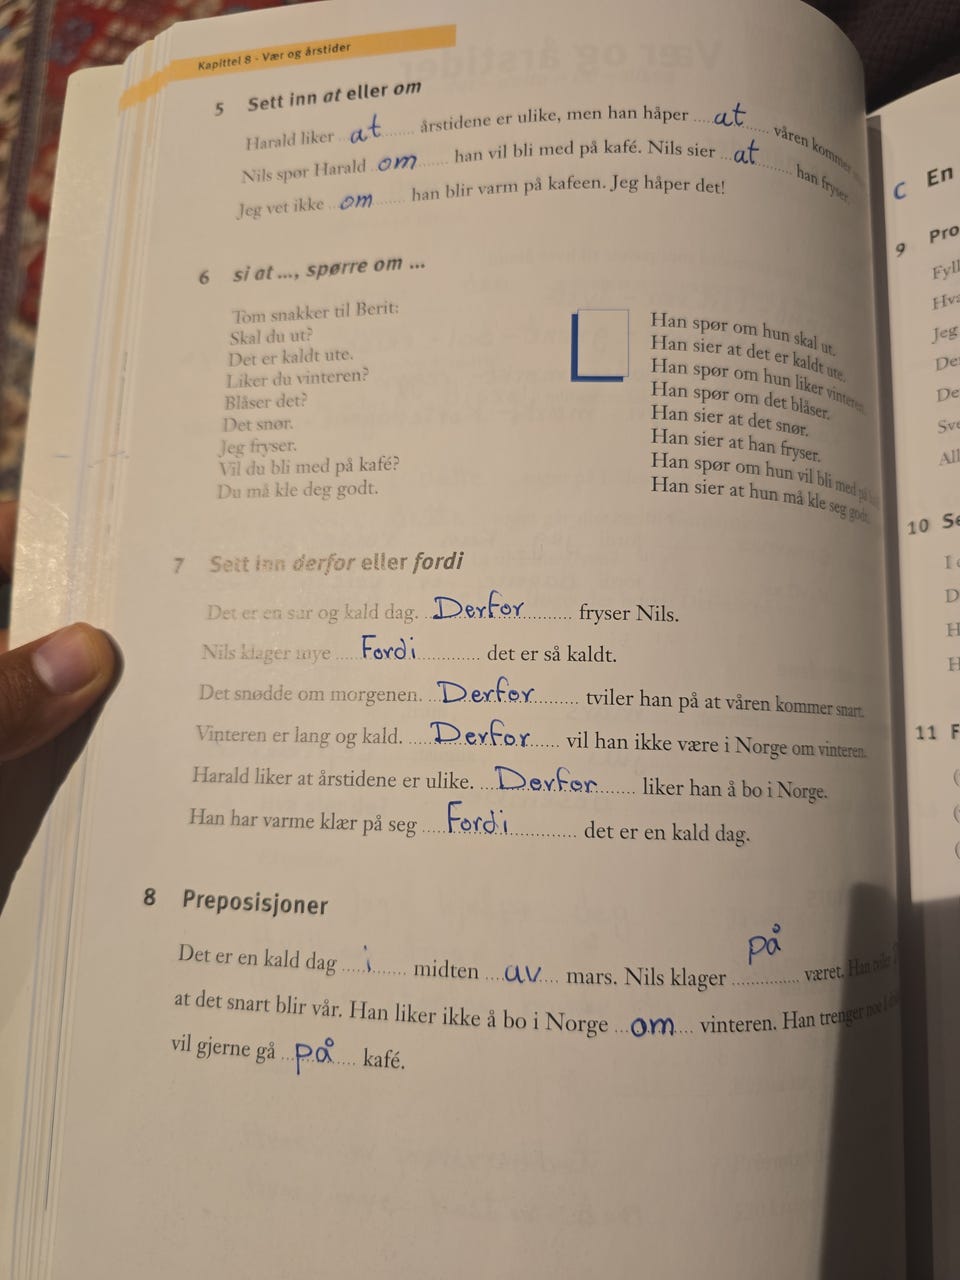 Kapittel 8 - Vær og årstider
5 Sett inn at eller om
Harald liker at årstidene er ulike, men han håper at våren kommer
Nils spør Harald om han vil bli med på kafé. Nils sier at han fryser.
Jeg vet ikke om han blir varm på kafeen. Jeg håper det!
6 si at ..., spørre om ...
Tom snakker til Berit:
Skal du ut?
Det er kaldt ute.
Liker du vinteren?
Blåser det?
Det snør.
Jeg fryser.
Vil du bli med på kafé?
Du må kle deg godt.
Han spør om hun skal ut.
Han sier at det er kaldt ute.
Han spør om hun liker vinteren.
Han spør om det blåser.
Han sier at det snør.
Han sier at han fryser.
Han spør om hun vil bli med på
Han sier at hun må kle seg godt.
7 Sett inn derfor eller fordi
Det er en sur og kald dag. Derfor fryser Nils.
Nils klager mye Fordi det er så kaldt.
Det snødde om morgenen. Derfor tviler han på at våren kommer snart.
Vinteren er lang og kald. Derfor vil han ikke være i Norge om vinteren.
Harald liker at årstidene er ulike. Derfor liker han å bo i Norge.
Han har varme klær på seg Fordi det er en kald dag.
8 Preposisjoner
Det er en kald dag i midten av mars. Nils klager på været. Han tviler
at det snart blir vår. Han liker ikke å bo i Norge om vinteren. Han trenger noe
vil gjerne gå på kafé.
C En
9 Pro
Fyll
Hva
Jeg
De
De
Sve
All
10 Se
I
D
H
H
11 F
(
(
(